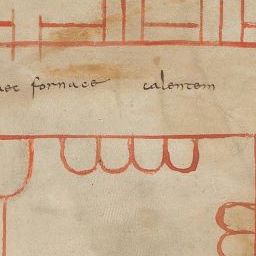 fornace calentem